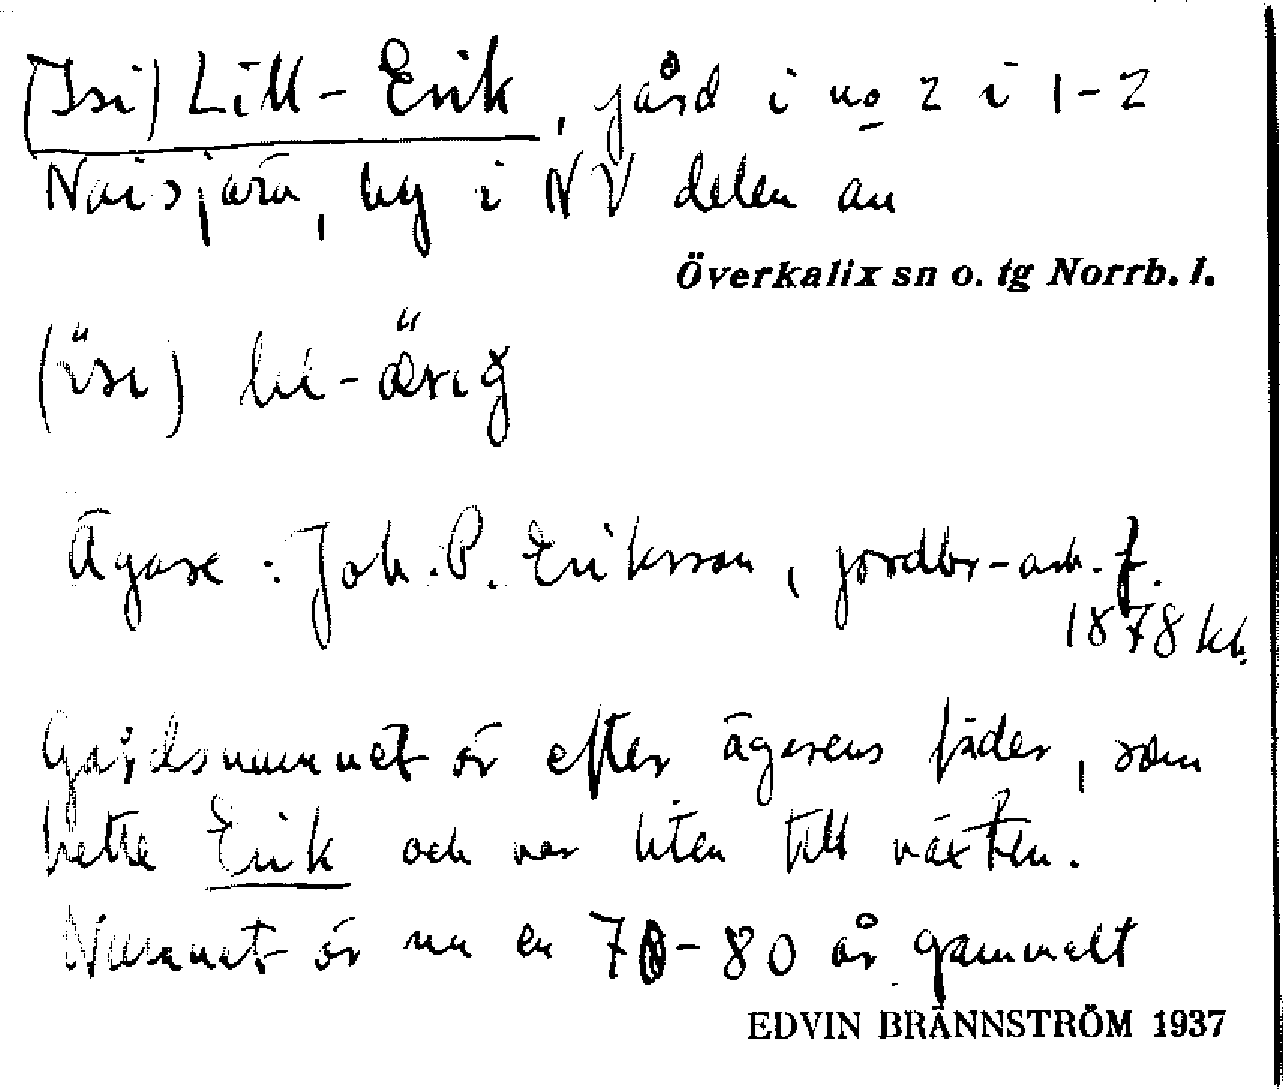 (Isi) Lill-Erik, gård i no 2 i 1-2
Naisjärv, by i NV delen av
Överkalix sn o. tg Norrb. l.
Ägare: Joh. P. Eriksson, jordbr-arb. f.
1878 kb.
Gårdsnamnet är efter ägarens fader, som
hette Erik och var liten till växten.
Namnet är nu en 70-80 år gammalt
EDVIN BRÄNNSTRÖM 1937